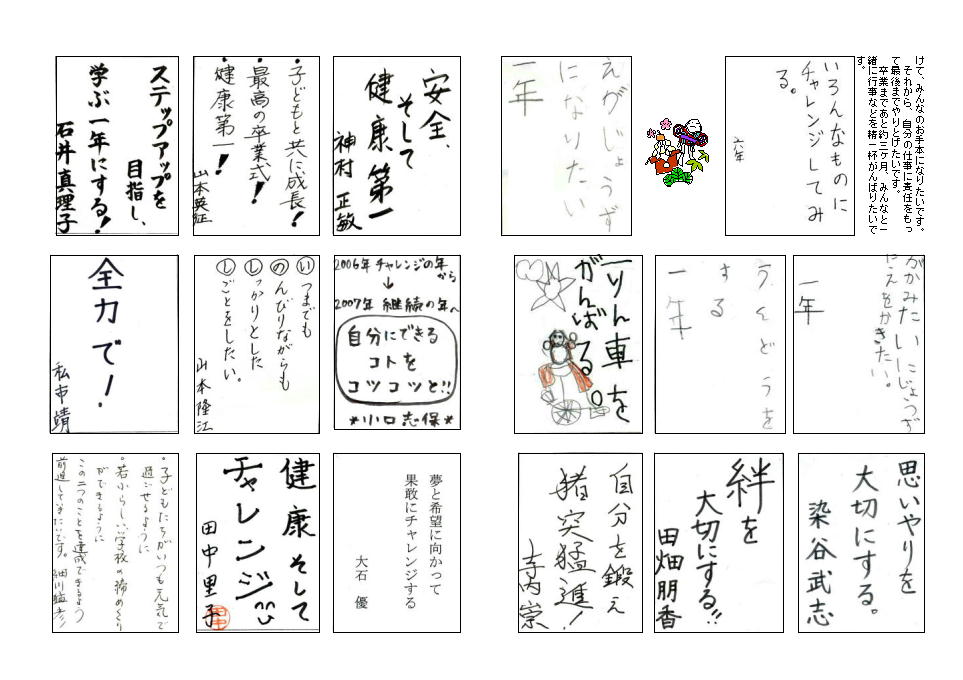 けて、みんなのお手本になりたいです。
それから、自分の仕事に責任をもっ
て最後までやりとげたいです。
卒業まであと約三ヶ月、みんなと一
緒に行事などを精一杯がんばりたいで
す。
いろんなものに
チャレンジしてみ
る。
六年
えがじょうず
になりたい
一年
安全、
そして
健康第一
神村 正敏
・子どもと共に成長!
・最高の卒業式!
・健康第一!
山本英征
ステップアップを
目指し、
学ぶ一年にする!
石井真理子
がかみたいにじょうず
にえをかきたい。
一年
うんどうを
する
一年
一りん車を
がんばる。
2006年 チャレンジの年
から
↓
2007年 継続の年へ
自分にできる
コトを
コツコツと!!
*小口志保*
いつまでも
のんびりながらも
しっかりとした
しごとをしたい。
山本隆江
全力で!
私市靖
思いやりを
大切にする。
染谷武志
絆を
大切にする!!
田畑朋香
自分を鍛え
猪突猛進!
寺内崇
夢と希望に向かって
果敢にチャレンジする
大石 優
健康そして
チャレンジ
田中里子
・子どもたちがいつも元気で
過ごせるように
・若からしい学校の締めくくり
ができるように
この二つのことを達成できるよう
前進していきたいです。